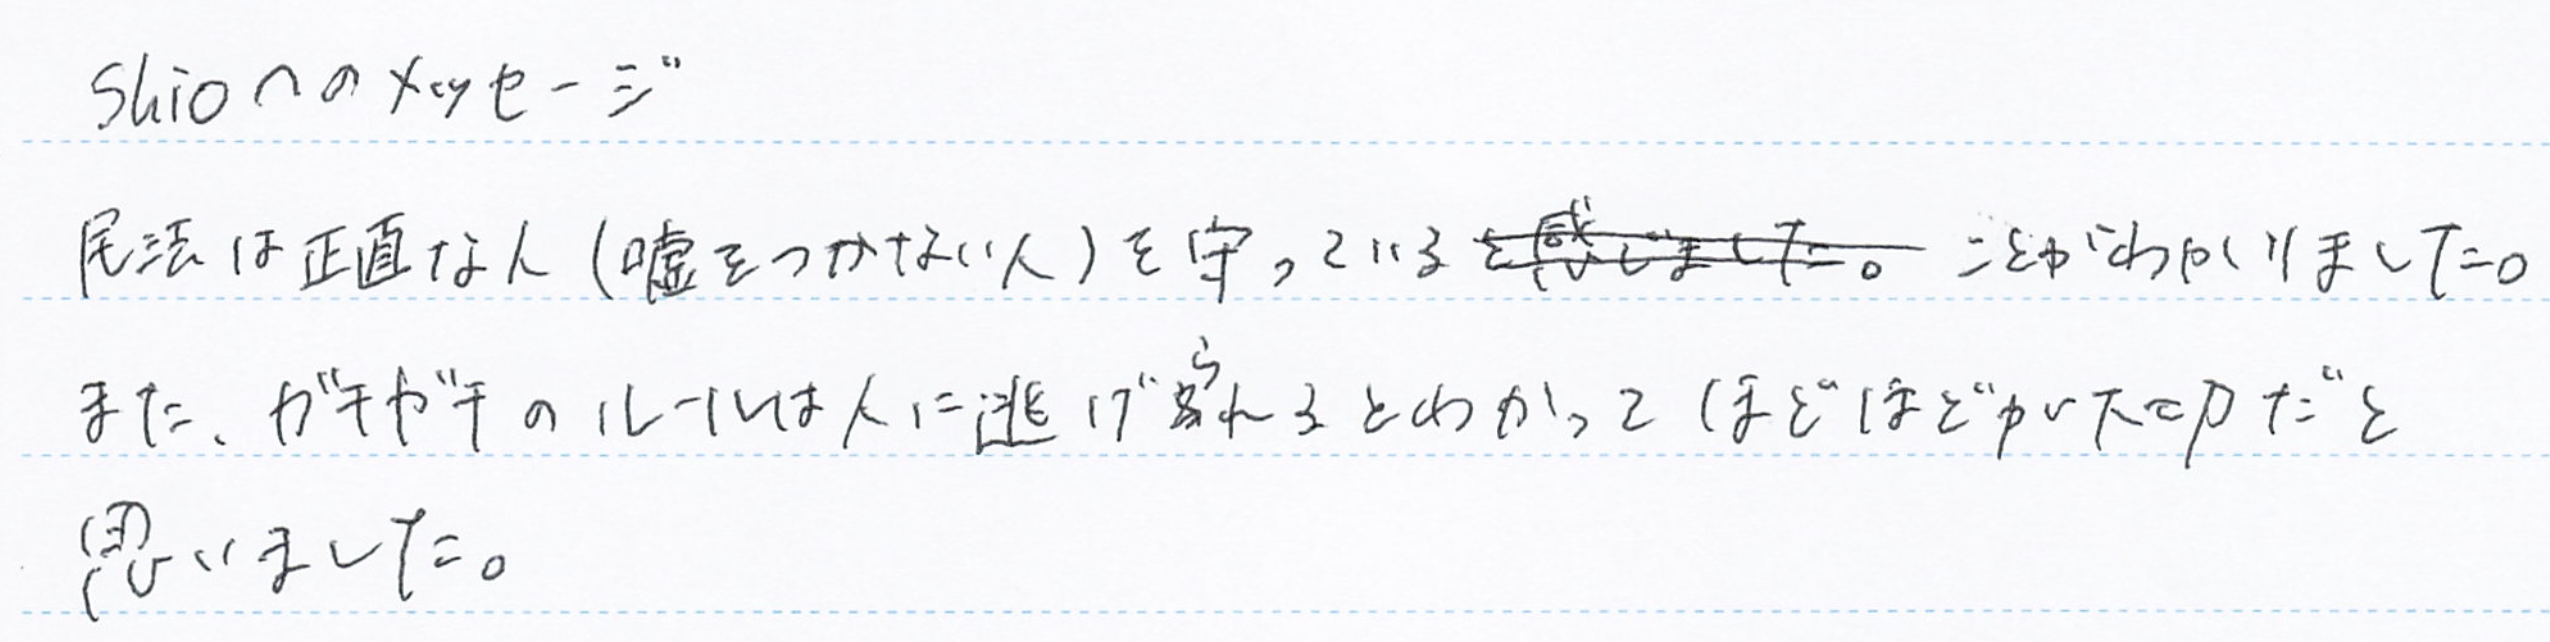 Shioへのメッセージ
民法は正直な人(嘘をつかない人)を守っていると感じました。ことがわかりました。
また、ガチガチのルールは人に逃げられるとわかってほどほどが大切だと
思いました。